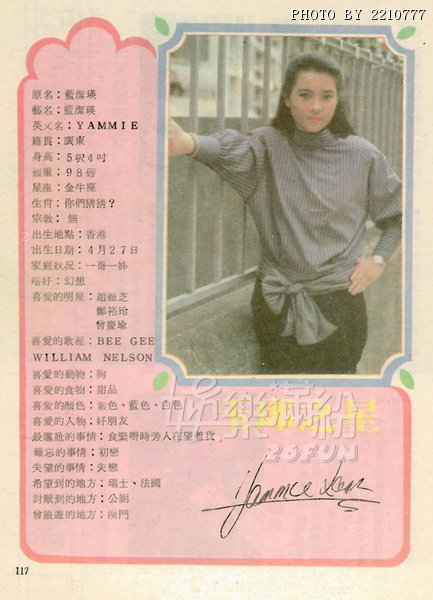 PHOTO BY 2210777
原名：藍潔瑛
藝名：藍潔瑛
英文名：YAMMIE
籍貫：廣東
身高：5呎4吋
體重：98磅
星座：金牛座
生肖：你們猜猜？
宗教：無
出生地點：香港
出生日期：4月27日
家庭狀況：一哥一姊
嗜好：幻想
喜愛的明星：趙雅芝
鄭裕玲
曾慶瑜
喜愛的歌星：BEE GEE
WILLIAM NELSON
喜愛的動物：狗
喜愛的食物：甜品
喜愛的顏色：紫色、藍色、白色
喜愛的人物：好朋友
最尷尬的事情：食緊嘢時旁人在望着我
難忘的事情：初戀
失望的事情：失戀
希望到的地方：瑞士、法國
討厭到的地方：公厠
曾旅遊的地方：澳門
之星
娛樂繽紛
26FUN
Yammie
117